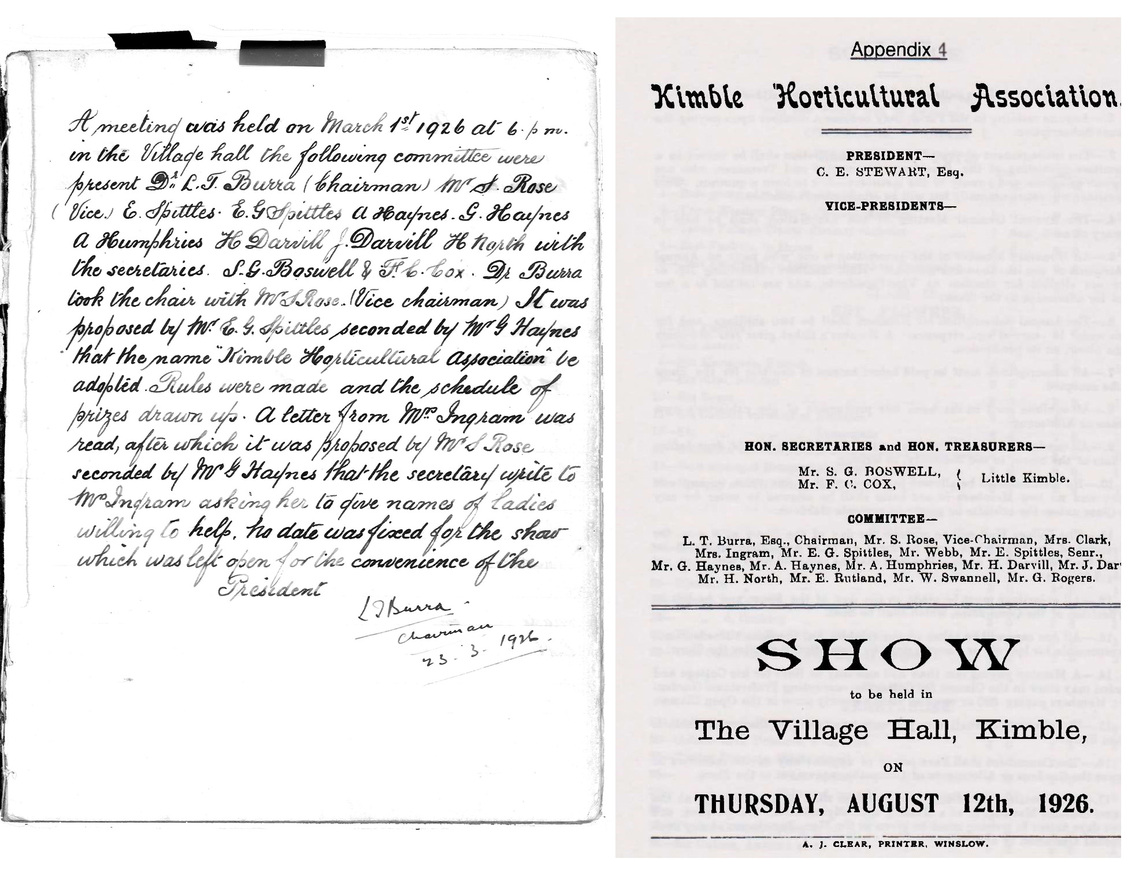 A meeting was held on March 1st 1926 at 6. p m.
in the Village hall the following committee were
present Dr. L. T. Burra (Chairman) Mr S. Rose
(Vice) E. Spittles. E. G Spittles A Haynes. G. Haynes
A Humphries H Darvill J. Darvill H North with
the secretaries. S. G. Boswell & F. C. Cox. Dr Burra
took the chair with Mr S Rose. (Vice chairman) It was
proposed by Mr E. G. Spittles seconded by Mr G Haynes
that the name "Kimble Horticultural Association" be
adopted. Rules were made and the schedule of
prizes drawn up. A letter from Mrs Ingram was
read, after which it was proposed by Mr S Rose
seconded by Mr G Haynes that the secretary write to
Mrs Ingram asking her to give names of ladies
willing to help. No date was fixed for the show
which was left open for the convenience of the
President
L T Burra
Chairman
23. 3. 1926.
Appendix 4
Kimble Horticultural Association.
PRESIDENT—
C. E. STEWART, Esq.
VICE-PRESIDENTS—
HON. SECRETARIES and HON. TREASURERS—
Mr. S. G. BOSWELL,
Mr. F. C. COX,
Little Kimble.
COMMITTEE—
L. T. Burra, Esq., Chairman, Mr. S. Rose, Vice-Chairman, Mrs. Clark,
Mrs. Ingram, Mr. E. G. Spittles, Mr. Webb, Mr. E. Spittles, Senr.,
Mr. G. Haynes, Mr. A. Haynes, Mr. A. Humphries, Mr. H. Darvill, Mr. J. Dar
Mr. H. North, Mr. E. Rutland, Mr. W. Swannell, Mr. G. Rogers.
SHOW
to be held in
The Village Hall, Kimble,
ON
THURSDAY, AUGUST 12th, 1926.
A. J. CLEAR, PRINTER, WINSLOW.